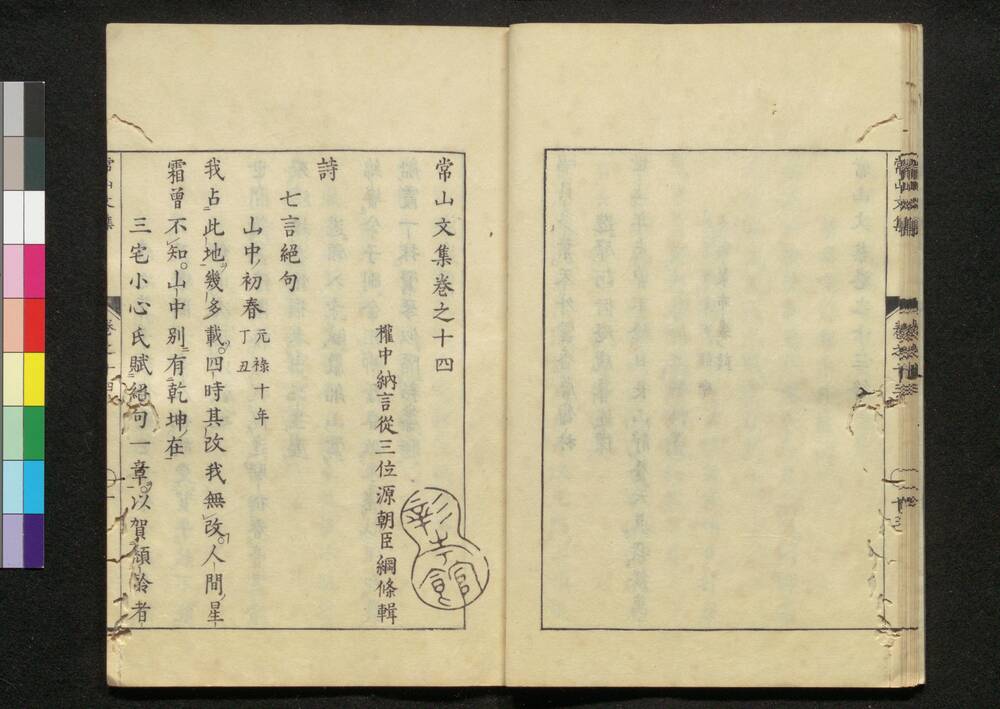 常山文集卷之十四
權中納言從三位源朝臣綱條輯
彰考館
詩
七言絕句
山中初春 元祿十年丁丑
我占此地幾多載。四時其改我無改。人間星
霜曾不知。山中別有乾坤在
三宅小心氏賦絕句一章。以賀頹齡者